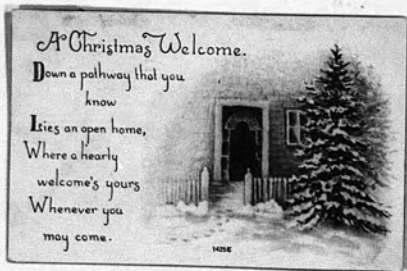 A Christmas Welcome.
Down a pathway that you
know
Lies an open home,
Where a hearty
welcome's yours
Whenever you
may come.
1425E